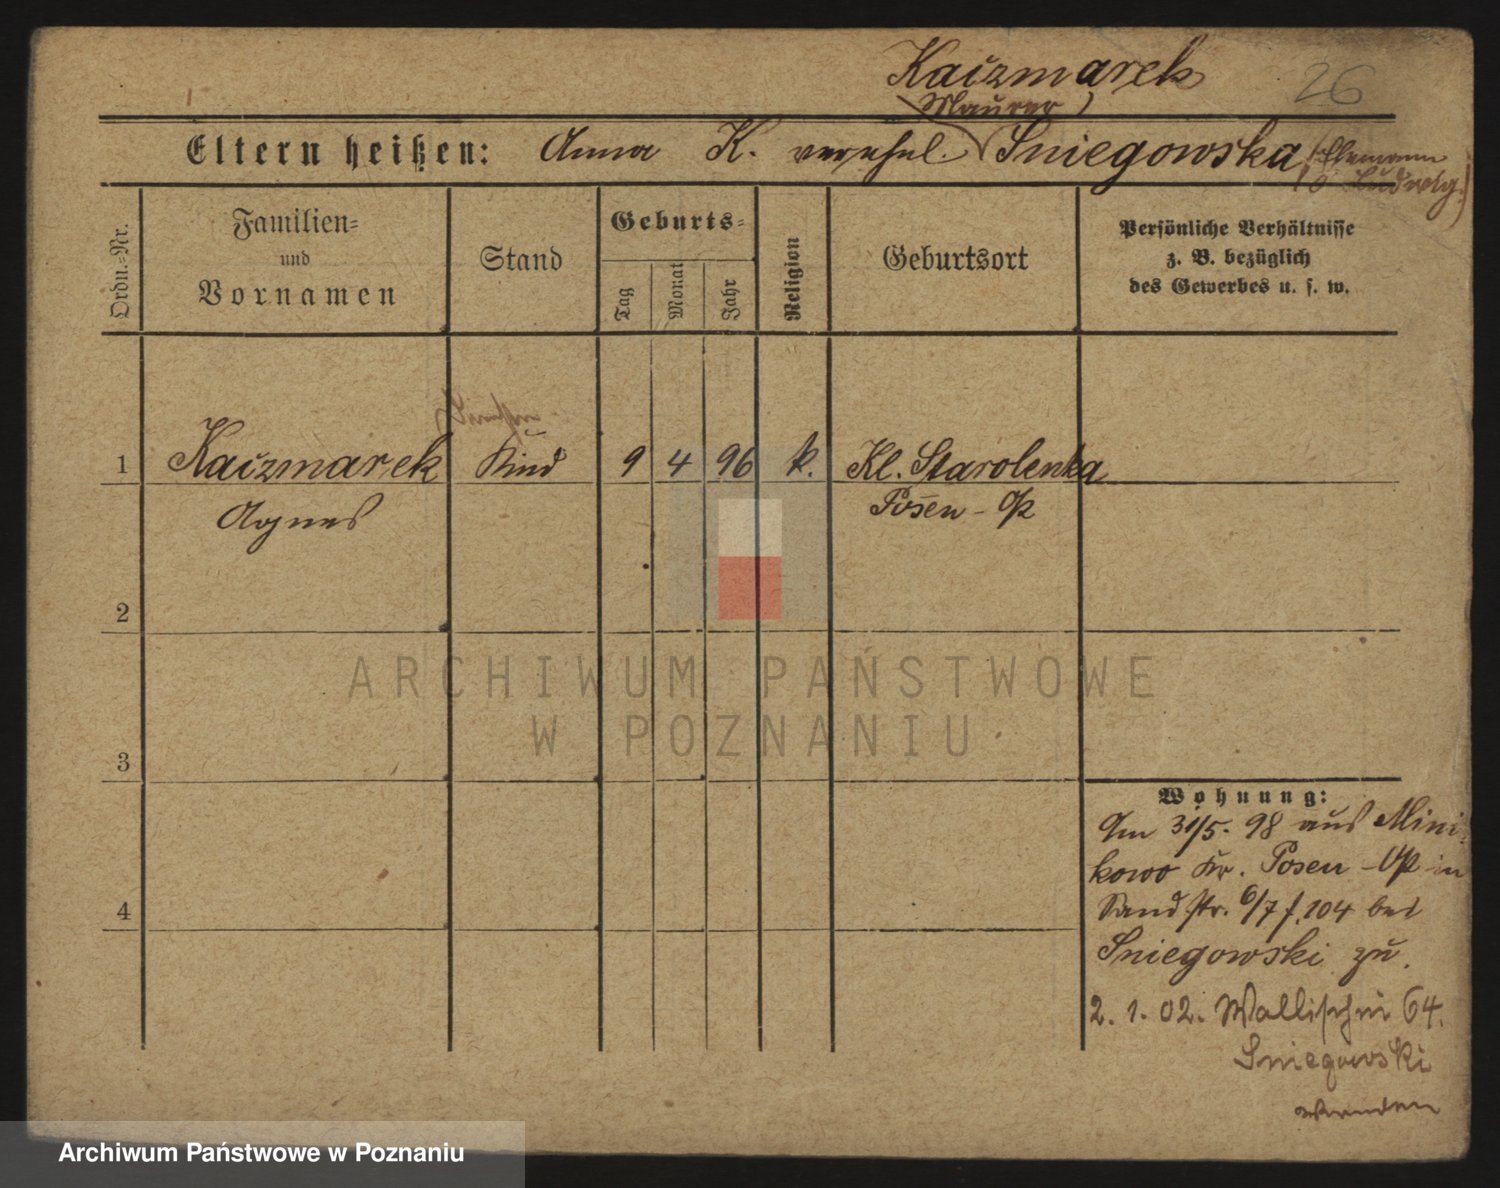 Kaczmarek 26
(Maurer)
Eltern heißen: Anna K. verehel. Sniegowska (Ehemann
Ludwig)
Ordn.-Nr.
Familien-
und
Vornamen
Stand
Geburts-
Tag
Monat
Jahr
Religion
Geburtsort
Persönliche Verhältnisse
z. B. bezüglich
des Gewerbes u. s. w.
1 Kaczmarek Kind 9 4 96 k. Kl. Starolenka
Agnes Posen - Op
2
ARCHIWUM PAŃSTWOWE
W POZNANIU
3
Wohnung:
Am 31/5. 98 aus Mini-
kowo Kr. Posen - Op in
Sandstr. 6/7 f. 104 bei
4
Sniegowski zu.
2. 1. 02. Wallischei 64.
Sniegowski
wenden
Archiwum Państwowe w Poznaniu